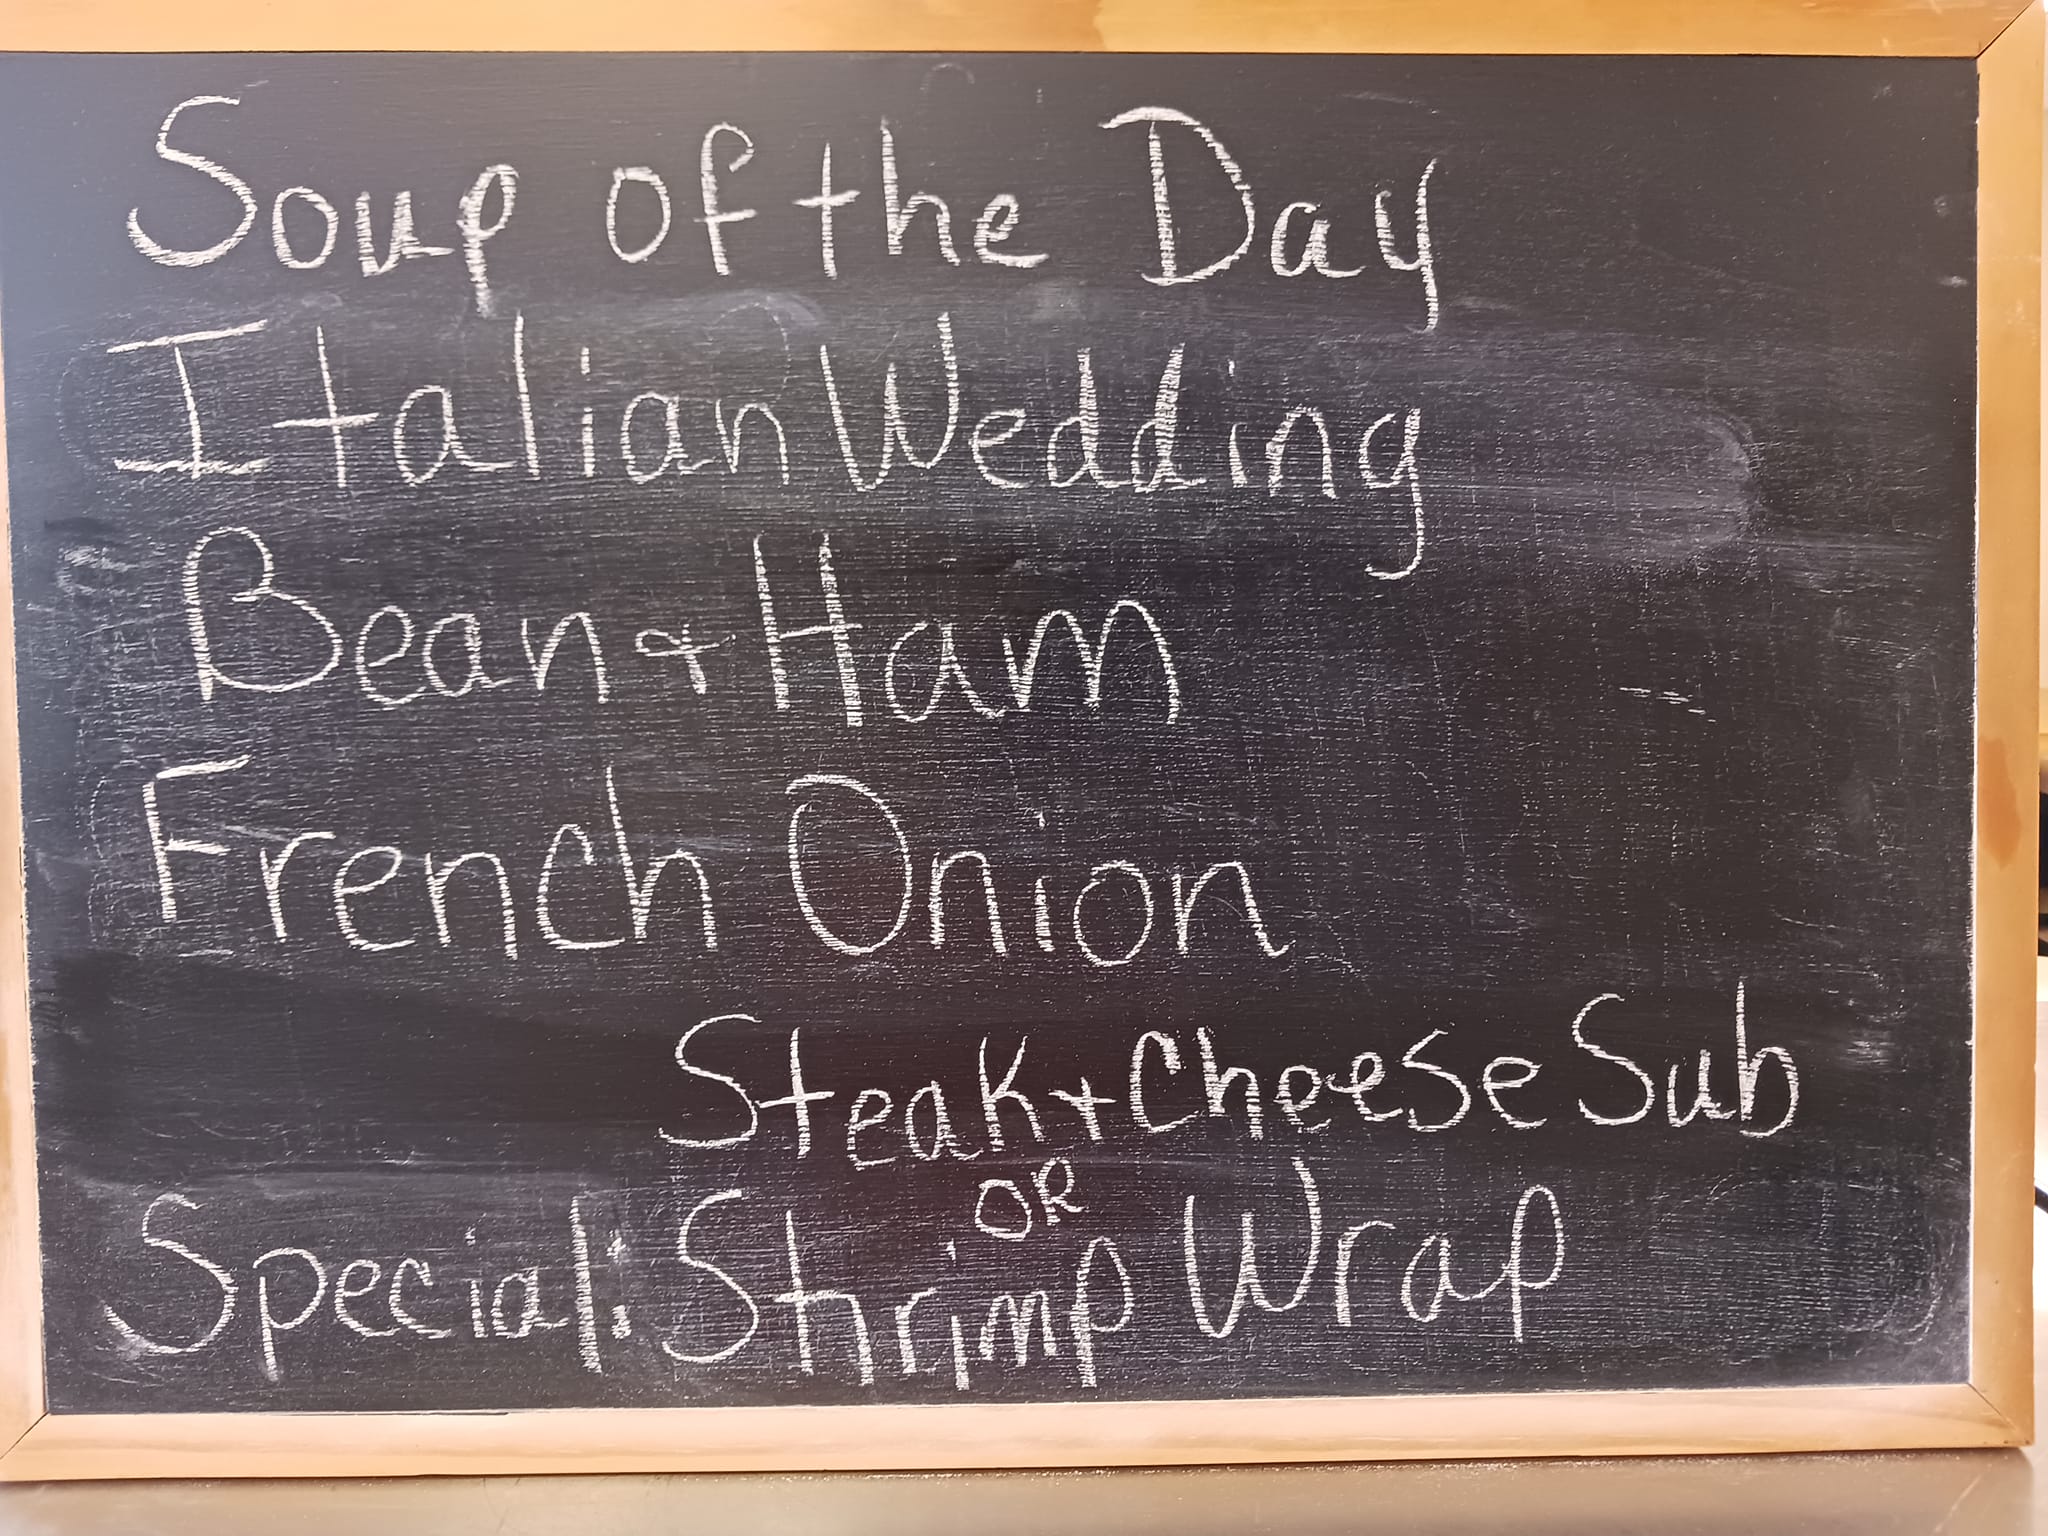 Soup of the Day
Italian Wedding
Bean + Ham
French Onion
Steak + Cheese Sub
OR
Special: Shrimp Wrap